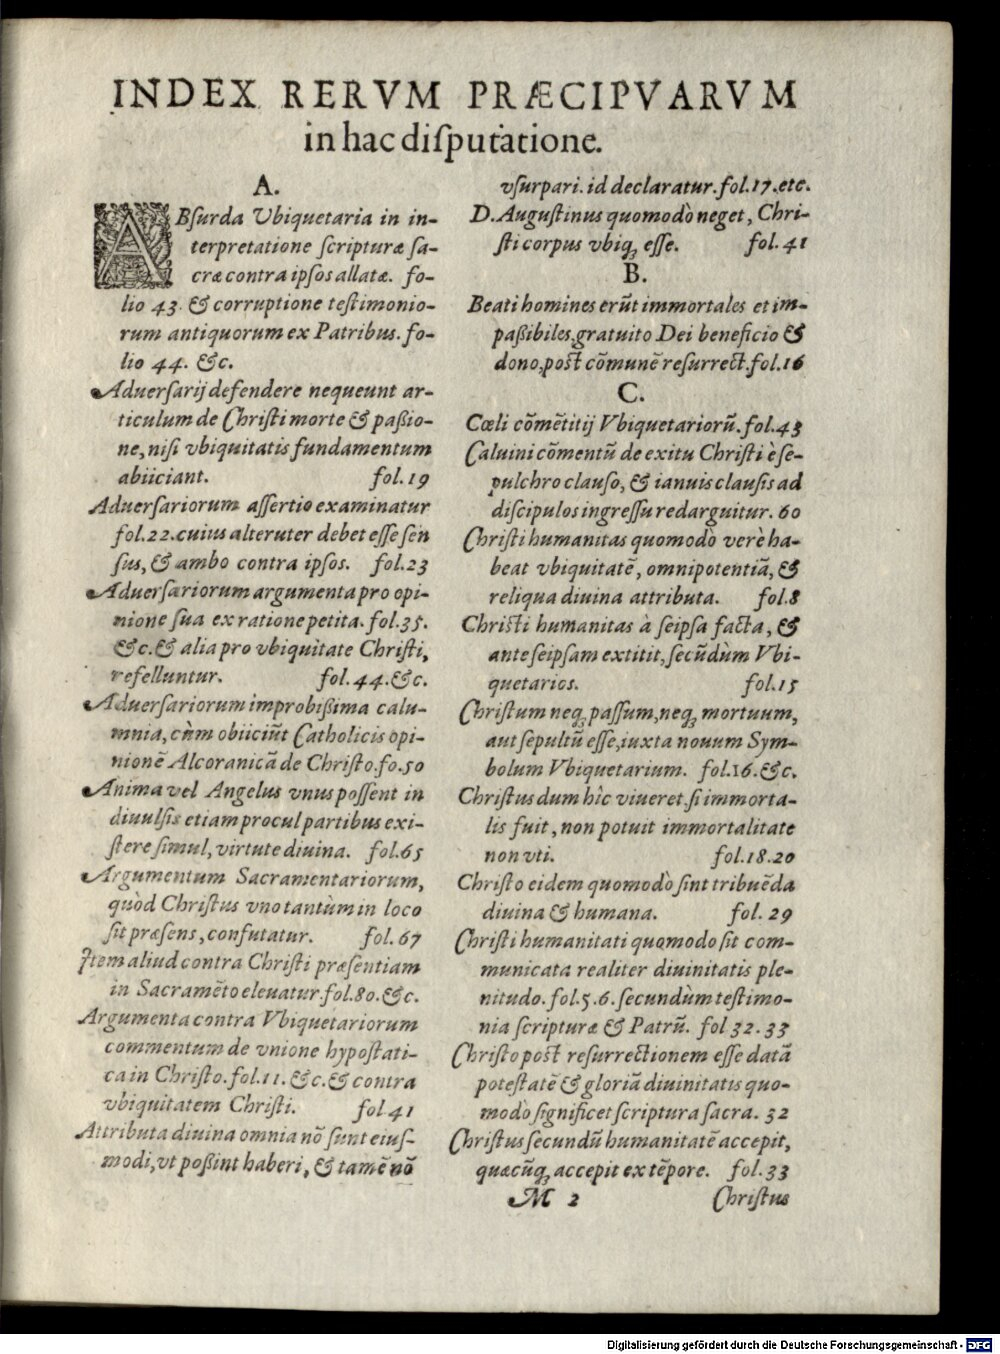 INDEX RERVM PRÆCIPVARVM
in hac diſputatione.
A.
ABſurda Vbiquetaria in in-
terpretatione ſcripturæ ſa-
cræ contra ipſos allatæ. fo-
lio 43. & corruptione teſtimonio-
rum antiquorum ex Patribus. fo-
lio 44. &c.
Aduerſarij defendere nequeunt ar-
ticulum de Chriſti morte & paßio-
ne, niſi vbiquitatis fundamentum
abiiciant. fol. 19
Aduerſariorum aſſertio examinatur
fol. 22. cuius alteruter debet eſſe ſen
ſus, & ambo contra ipſos. fol. 23
Aduerſariorum argumenta pro opi-
nione ſua ex ratione petita. fol. 35.
&c. & alia pro vbiquitate Chriſti,
refelluntur. fol. 44. &c.
Aduerſariorum improbißima calu-
mnia, cùm obiiciũt Catholicis opi-
nionẽ Alcoranicã de Chriſto. fo. 50
Anima vel Angelus vnus poſſent in
diuulſis etiam procul partibus exi-
ſtere ſimul, virtute diuina. fol. 65
Argumentum Sacramentariorum,
quòd Chriſtus vno tantùm in loco
ſit præſens, confutatur. fol. 67
Item aliud contra Chriſti præſentiam
in Sacramẽto eleuatur. fol. 80. &c.
Argumenta contra Vbiquetariorum
commentum de vnione hypoſtati-
ca in Chriſto. fol. 11. &c. & contra
vbiquitatem Chriſti. fol 41
Attributa diuina omnia nõ ſunt eiuſ-
modi, vt poßint haberi, & tamẽ nõ
vſurpari. id declaratur. fol. 17. etc.
D. Auguſtinus quomodò neget, Chri-
ſti corpus vbiq; eſſe. fol. 41
B.
Beati homines erũt immortales et im-
paßibiles, gratuito Dei beneficio &
dono, poſt cõmunẽ reſurrect. fol. 16
C.
Cœli cõmẽtitij Vbiquetariorũ. fol. 43
Caluini cõmentũ de exitu Chriſti è ſe-
pulchro clauſo, & ianuis clauſis ad
diſcipulos ingreſſu redarguitur. 60
Chriſti humanitas quomodò verè ha-
beat vbiquitatẽ, omnipotentiã, &
reliqua diuina attributa. fol. 8
Chriſti humanitas à ſeipſa facta, &
ante ſeipſam extitit, ſecũdùm Vbi-
quetarios. fol. 15
Chriſtum neq; paſſum, neq; mortuum,
aut ſepultũ eſſe, iuxta nouum Sym-
bolum Vbiquetarium. fol. 16. &c.
Chriſtus dum hîc viueret, ſi immorta-
lis fuit, non potuit immortalitate
non vti. fol. 18. 20
Chriſto eidem quomodò ſint tribuẽda
diuina & humana. fol. 29
Chriſti humanitati quomodo ſit com-
municata realiter diuinitatis ple-
nitudo. fol. 5. 6. ſecundùm teſtimo-
nia ſcripturæ & Patrũ. fol 32. 33
Chriſto poſt reſurrectionem eſſe datã
poteſtatẽ & gloriã diuinitatis quo-
modò ſignificet ſcriptura ſacra. 32
Chriſtus ſecundũ humanitatẽ accepit,
quæcũq; accepit ex tẽpore. fol. 33
M 2 Chriſtus
Digitalisierung gefördert durch die Deutsche Forschungsgemeinschaft - DFG